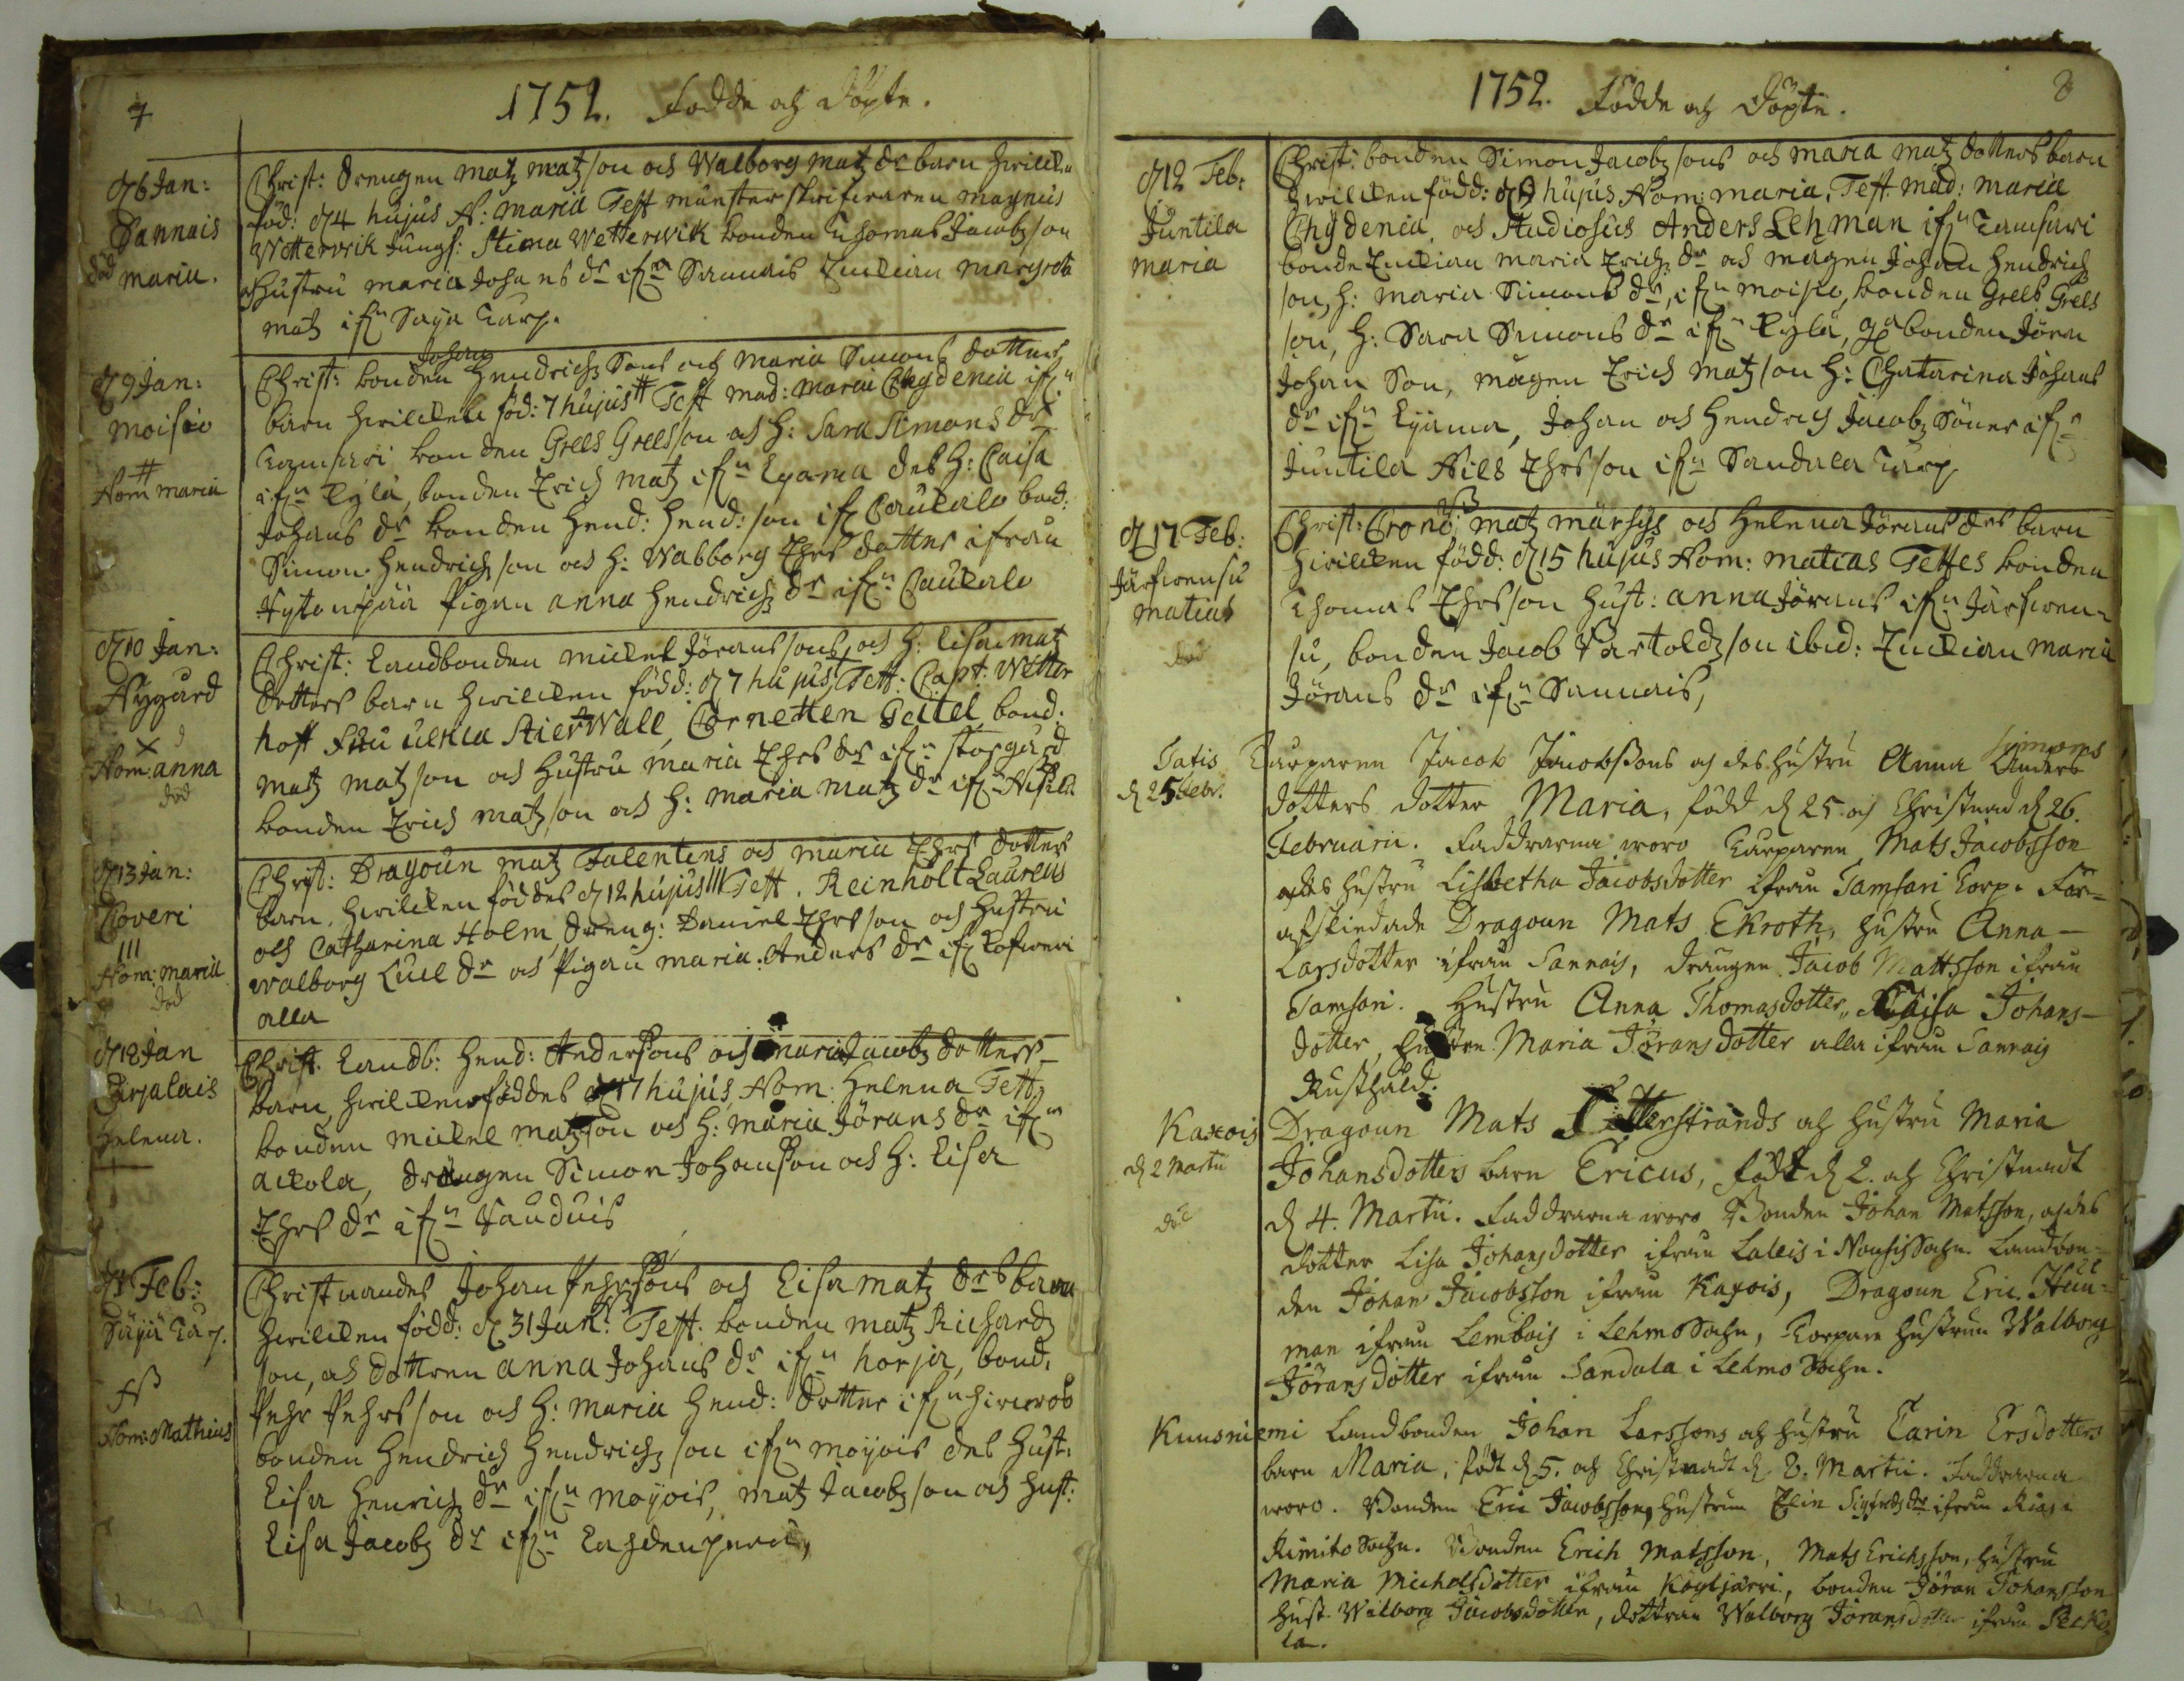 7
1752. Födde och Döpte.
d 6 Jan:
Sannais
död maria.
Christ: drengen matz matzson och Walborg matz dr barn hwilcken
föd: d 4 hujus N: maria Test munsterskrifwaren magnus
Wetterwik Jungf: Stina Wetterwik bonden Thomas Jacobz son
och hustru maria Johans dr ifrn Sannais Enckian margreta
matz ifrn Saya Earp.
d 9 Jan:
moisio
#
Nom maria
Johan
Christ: bonden Hendrichz Sons och maria Simons dotters
barn hwilcken föd: 7 hujus # Test mad: maria Chydenia ifrn
Tamsari bonden Grels Grelsson och H: Sara Simons dr
ifrn Kylä, bonden Erich matz ifrn Eyama des H: Caisa
Johans dr bonden Hend: Hend: son ifrn Caukalo bond:
Simon Hendrichson och H: Wabborg Ehrs dotter ifrån
pigan anna Hendrichz dr ifrn Caukalo
d 10 Jan:
Nygård
×
Nom: anna
död
Christ: Landbonden mickel Jörans sons och H: Lisa matz
dotters barn hwilcken född: d 7 hujus, Test: Capt: Wetter
hoff Fru ulrica StierWall, Cornetten Geitel, bond:
matz matzson och Hustru maria Ehrs dr ifrn storgård
bonden Erich matzson och H: maria matz dr ifrn
d 13 Jan:
Koveri
III
Nom: maria
död
Christ: Dragoun matz Talentens och maria Ehrs dotters
barn, hwilcken föddes d 12 hujus III Test. Reinholt Laurens
och Catharina Holm, dreng: Daniel Ehrsson och Hustru
walborg Luc dr och pigan maria Anders dr ifrn Kofweri
alla
d 18 Jan
Carjalais
Helena.
Christ. Landb: Hend: Andersons och maria Jacobz dotters
barn, hwilcken föddes d 17 hujus, Nom: Helena Test:
bonden mickel matzson och H: maria Jörans dr ifrn
ackola, drängen Simon Johanson och H: Lisa
Ehrs dr ifrn
d 1 Feb:
Säyä Earp.
Nom: Mathias
Christnandes Johan Pehrsons och Lisa matz drs barn
hwilcken född: d 31 Jan: Test: bonden matz Richardz
son, och dottren anna Johans dr ifrn horja, bond.
Pehr Pehrsson och H: maria Hend: dotter ifrn
bonden Hendrich Hendrichz son ifrn moyois des Hust:
Lisa Henrich dr ifrn moyois, matz Jacobz son och Hust:
Lisa Jacobz dr ifrn Lahdenperä,
8
1752. Födde och Döpte.
d 12 Feb:
Juntila
maria
Christ: bonden Simon Jacobz sons och maria matz dotters barn
hwilcken född: d 9 hujus Nom: maria, Test mad: maria
Chydenia och Studiosus Anders Lehman ifrn Tamsari
bonde Enckian maria Erichz dr och mågen Johan Hendrich
son, H: maria Simons dr, ifrn moisio, bonden Grels Grels
son, H: Sara Simons dr ifrn Kylä, bonden Jören
Johan Son, mågen Erich matz son H: Chatarina Johans
dr ifrn Eyama, Johan och Hendrich Jacobz Söner ifrn
Juntila Nils Ehrsson ifrn Sandala Earp
d 17 Feb:
Järfwensu
matias
död
Christ: matz och Helena Jörans drs barn
hwilcken född: d 15 hujus Nom: matias Testes bonden
Thomas Ehrsson Hust: anna Jörans ifrn Järfwen-
su, bonden Jacob Bartoldz son ibid: Enckian maria
Jörans dr ifrn Sannais,
Tatis
d 25 Febr.
Simons
Karparen Jacob Jacobssons och des hustru Anna Anders
dotters dotter Maria, född d 25 och Christnad d 26.
Februarii. Faddrarna woro Karparen Mats Jacobsson
och des hustru Lisbetha Jacobsdotter ifrån Tamsari Torp. För-
afskiedade Dragoun Mats Ekroth, hustru Anna
Larsdotter ifrån Sannais, drängen Jacob Mattsson ifrån
Tamsari. Hustru Anna Thomasdotter, Caisa Johans-
dotter, hustru Maria Jöransdotter alla ifrån Sannais
Rusthåld.
Kaxois
d 2 Martii
död
Dragoun Mats Zitterstrands och hustru Maria
Johansdotters barn Ericus, född d 2. och Christnadt
d 4. Martii. Faddrarna woro Bonden Johan Matsson, och des
dotter Lisa Johansdotter ifrån Laleis i Nousis Sochn. Landbon-
den Johan Jacobsson ifrån Kaxois, Dragoun Eric
man ifrån Lembois i Lehmo Sochn, Torpare hustrun Walborg
Jöransdotter ifrån Sandala i Lehmo Sochn.
Kuusniemi Landbonden Johan Larssons och hustru Carin Ersdotters
barn Maria, född d 5. och Christnadt d 8. Martii. Faddrarna
woro. Bonden Eric Jacobsson, hustrun Elin Sigfreds dr ifrån
Rimito Sochn. Bonden Erich Matsson, Mats Erichsson, hustru
Maria Michelsdotter ifrån Köyljärvi, bonden Jöran Johansson
Hust. Walborg Jacobsdotter, dottran Walborg Jöransdotter ifrån Pecko-
la.